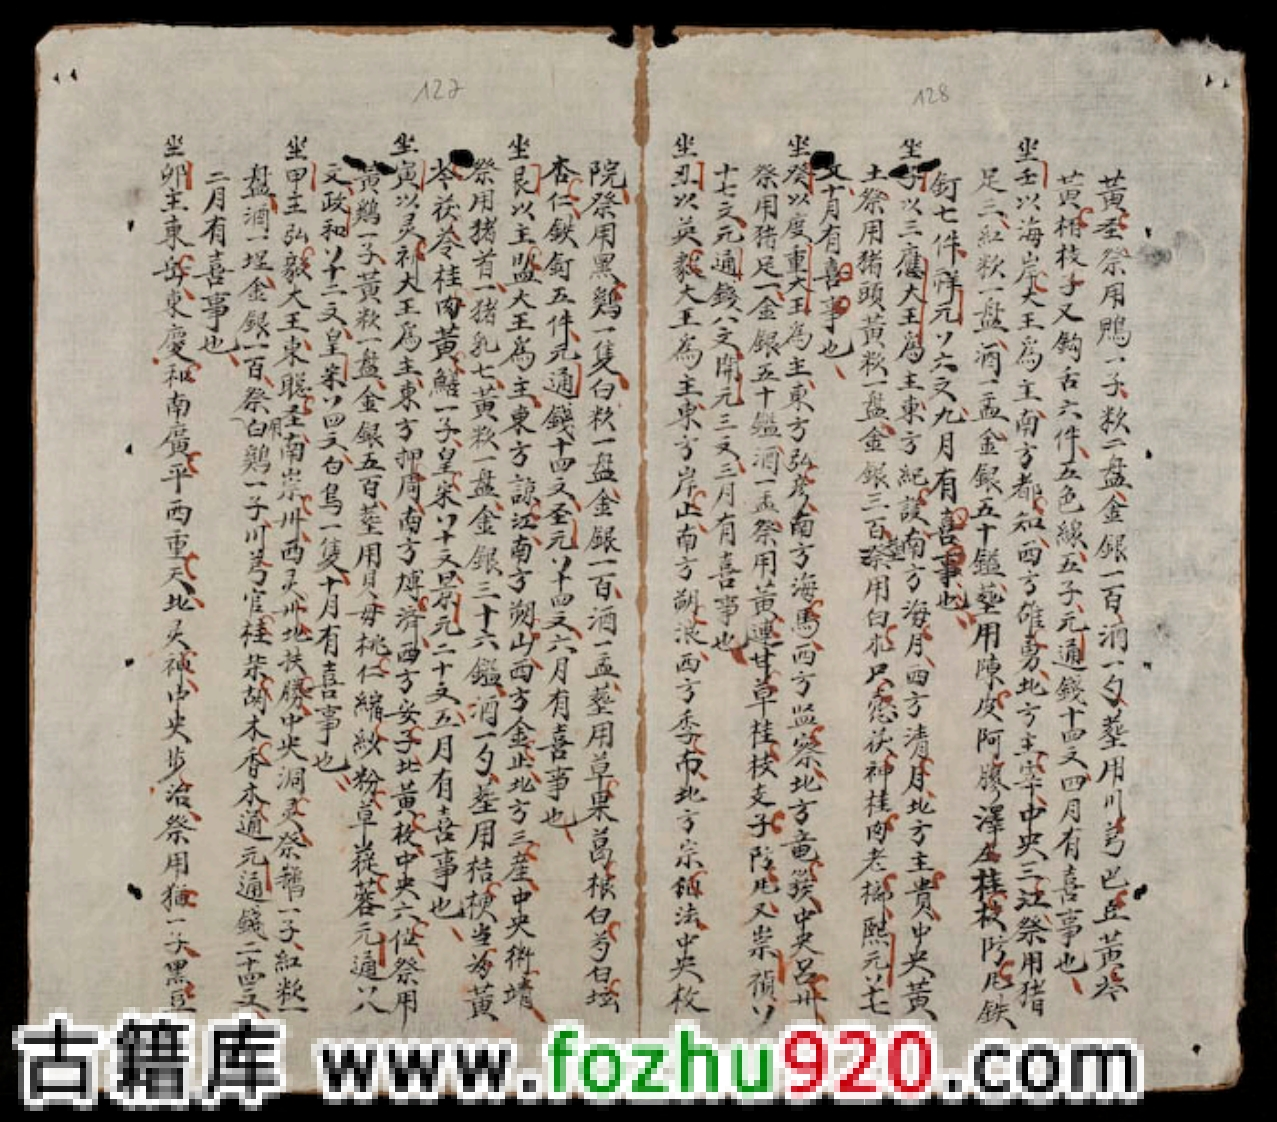 128
黃圣祭用鴨一子籹二盘金銀一百酒一勺塟用川芎巴豆黃芩
黃柏枝子又鈎舌六件五色線五子元通錢十四文四月有喜事也
坐壬以海岸大王為主南方都知西方雄勇北方主宰中央三江祭用猪
足三紅籹一盘酒一盃金銀五十鎰塟用陳皮阿膠澤全桂枝防風鉄
釘七件祥元㕥六文九月有喜事也
坐子以三應大王為主東方紀設南方海月西方清月北方主貴中央黃
土祭用猪頭黃籹一盘金銀三百塟用白茯神桂肉老熙元㕥七
文十月有喜事也
坐癸以度重大王為主東方弘彦南方海馬西方监察北方竜中央呂
祭用猪足一金銀五十鎰酒一盃祭用黃連甘草桂枝支子防風又崇禎㕥
十七文元通錢八文開元三文三月有喜事也
坐丑以英毅大王為主東方岸止南方朔浪西方季布北方宗法中央枚
127
院祭用黑鷄一隻白籹一盘金銀一百酒一盃塟用草果葛根白芍白坛
杏仁鉄釘五件元通錢十四文圣元㕥十四文六月有喜事也
坐艮以主盟大王為主東方諒江南方朔山西方金止北方三産中央術靖
祭用猪首一猪乳七黃籹一盘金銀三十六鎰酒一勺塟用桔梗当為黃
芩茯苓桂肉黃鱔一子皇宋㕥十文景元二十文五月有喜事也
坐寅以灵祁大王為主東方押局南方溥济西方安子北黃枚中央六位祭用
黃鷄一子黃籹一盘金銀五百塟用貝母桃仁縮紗粉草蓯蓉元通㕥八
文政和㕥十二文皇宋㕥四文白烏一隻十月有喜事也
坐甲主弘毅大王東聡圣南岸州西灵州北扶勝中央洞灵祭鵝一子紅籹一
盘酒一埕金銀一百祭用白鷄一子川芎官桂柴胡木香木通元通錢二十四文
二月有喜事也
坐卯主東岳東慶和南廣平西重天北灵神中央步治祭用猫一子黑豆
古籍库 www.fozhu920.com